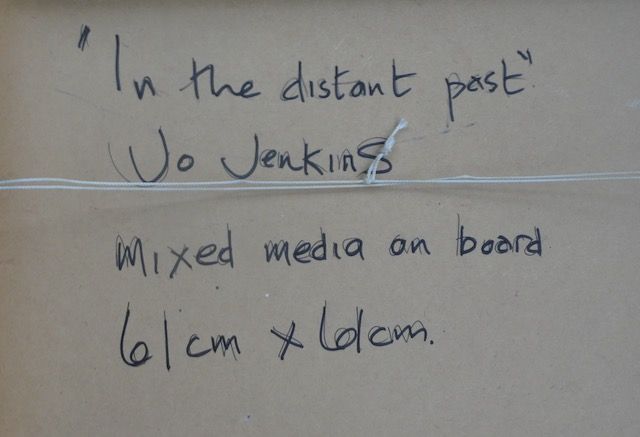 "In the distant past"
Jo Jenkins
mixed media on board
61cm x 61cm.